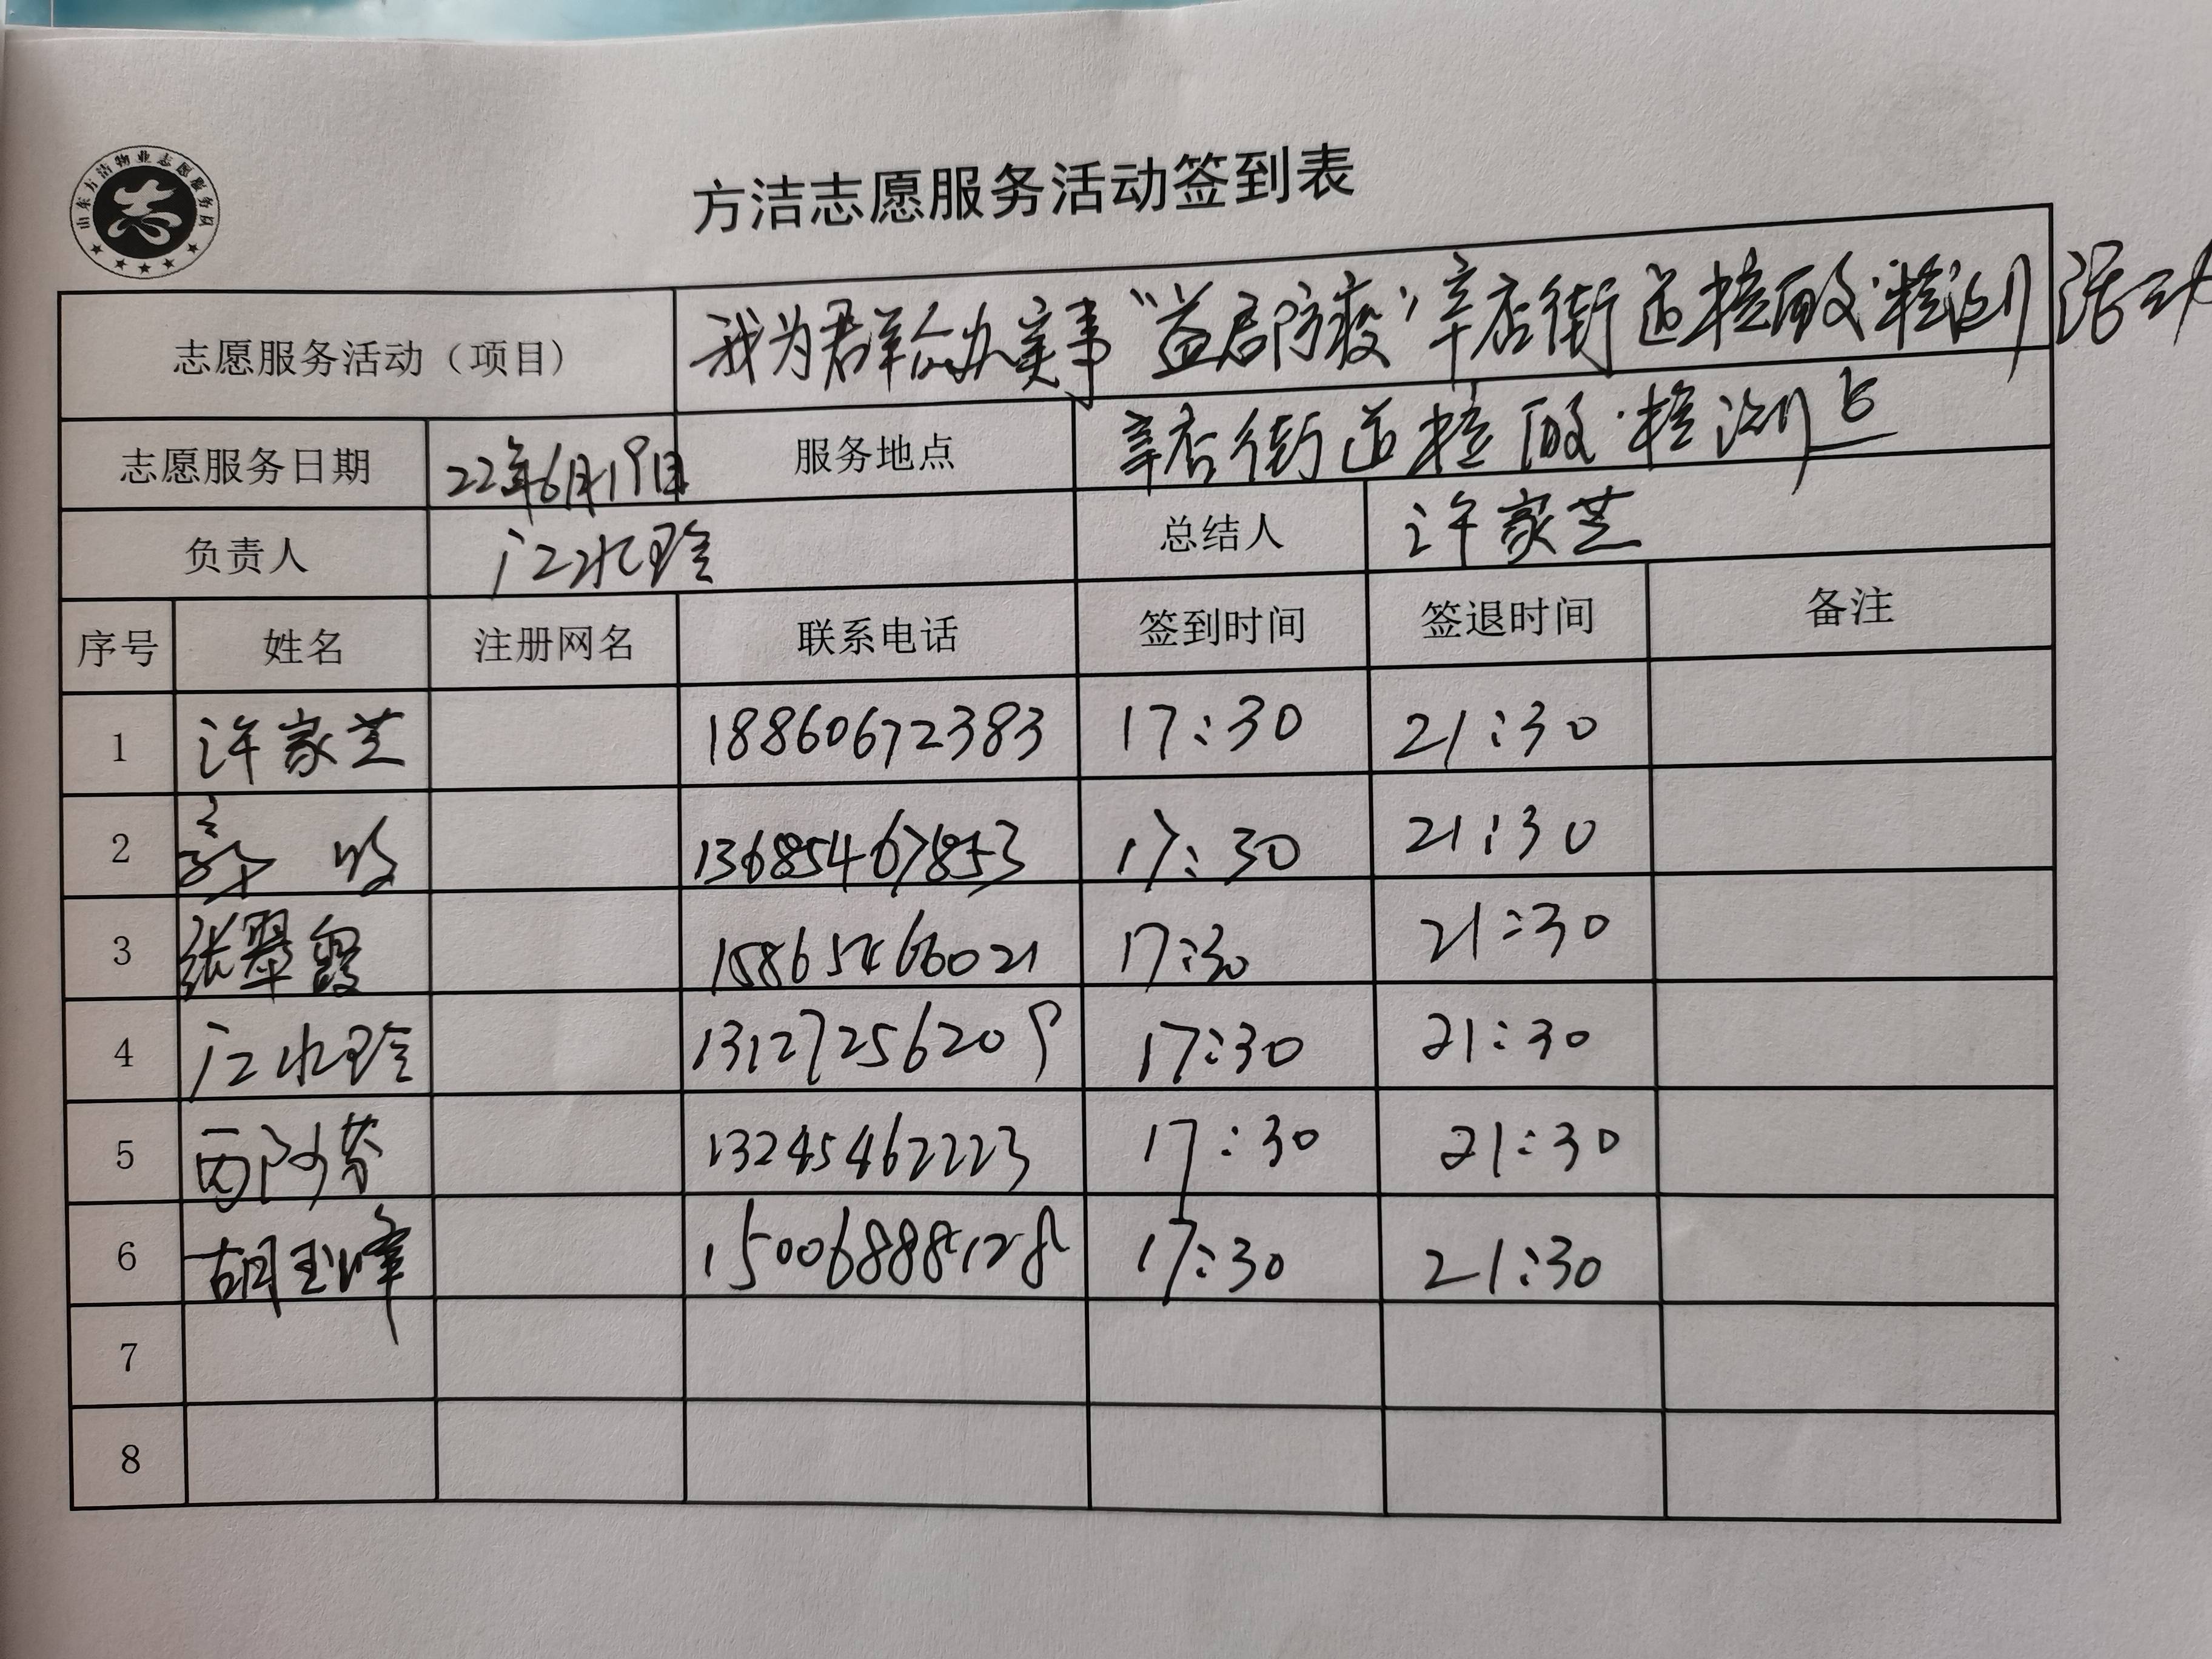 山东方洁物业志愿服务队
方洁志愿服务活动签到表
志愿服务活动（项目） 我为群众办实事“益启防疫”辛店街道核酸检测活动
志愿服务日期 22年6月19日 服务地点 辛店街道核酸检测点
负责人 江水玲 总结人 许家芝
序号 姓名 注册网名 联系电话 签到时间 签退时间 备注
1 许家芝 18860672383 17:30 21:30
2 13685467853 17:30 21:30
3 张翠霞 15865466021 17:30 21:30
4 江水玲 13127256209 17:30 21:30
5 西阿芬 13245462223 17:30 21:30
6 胡玉峰 15006888128 17:30 21:30
7
8